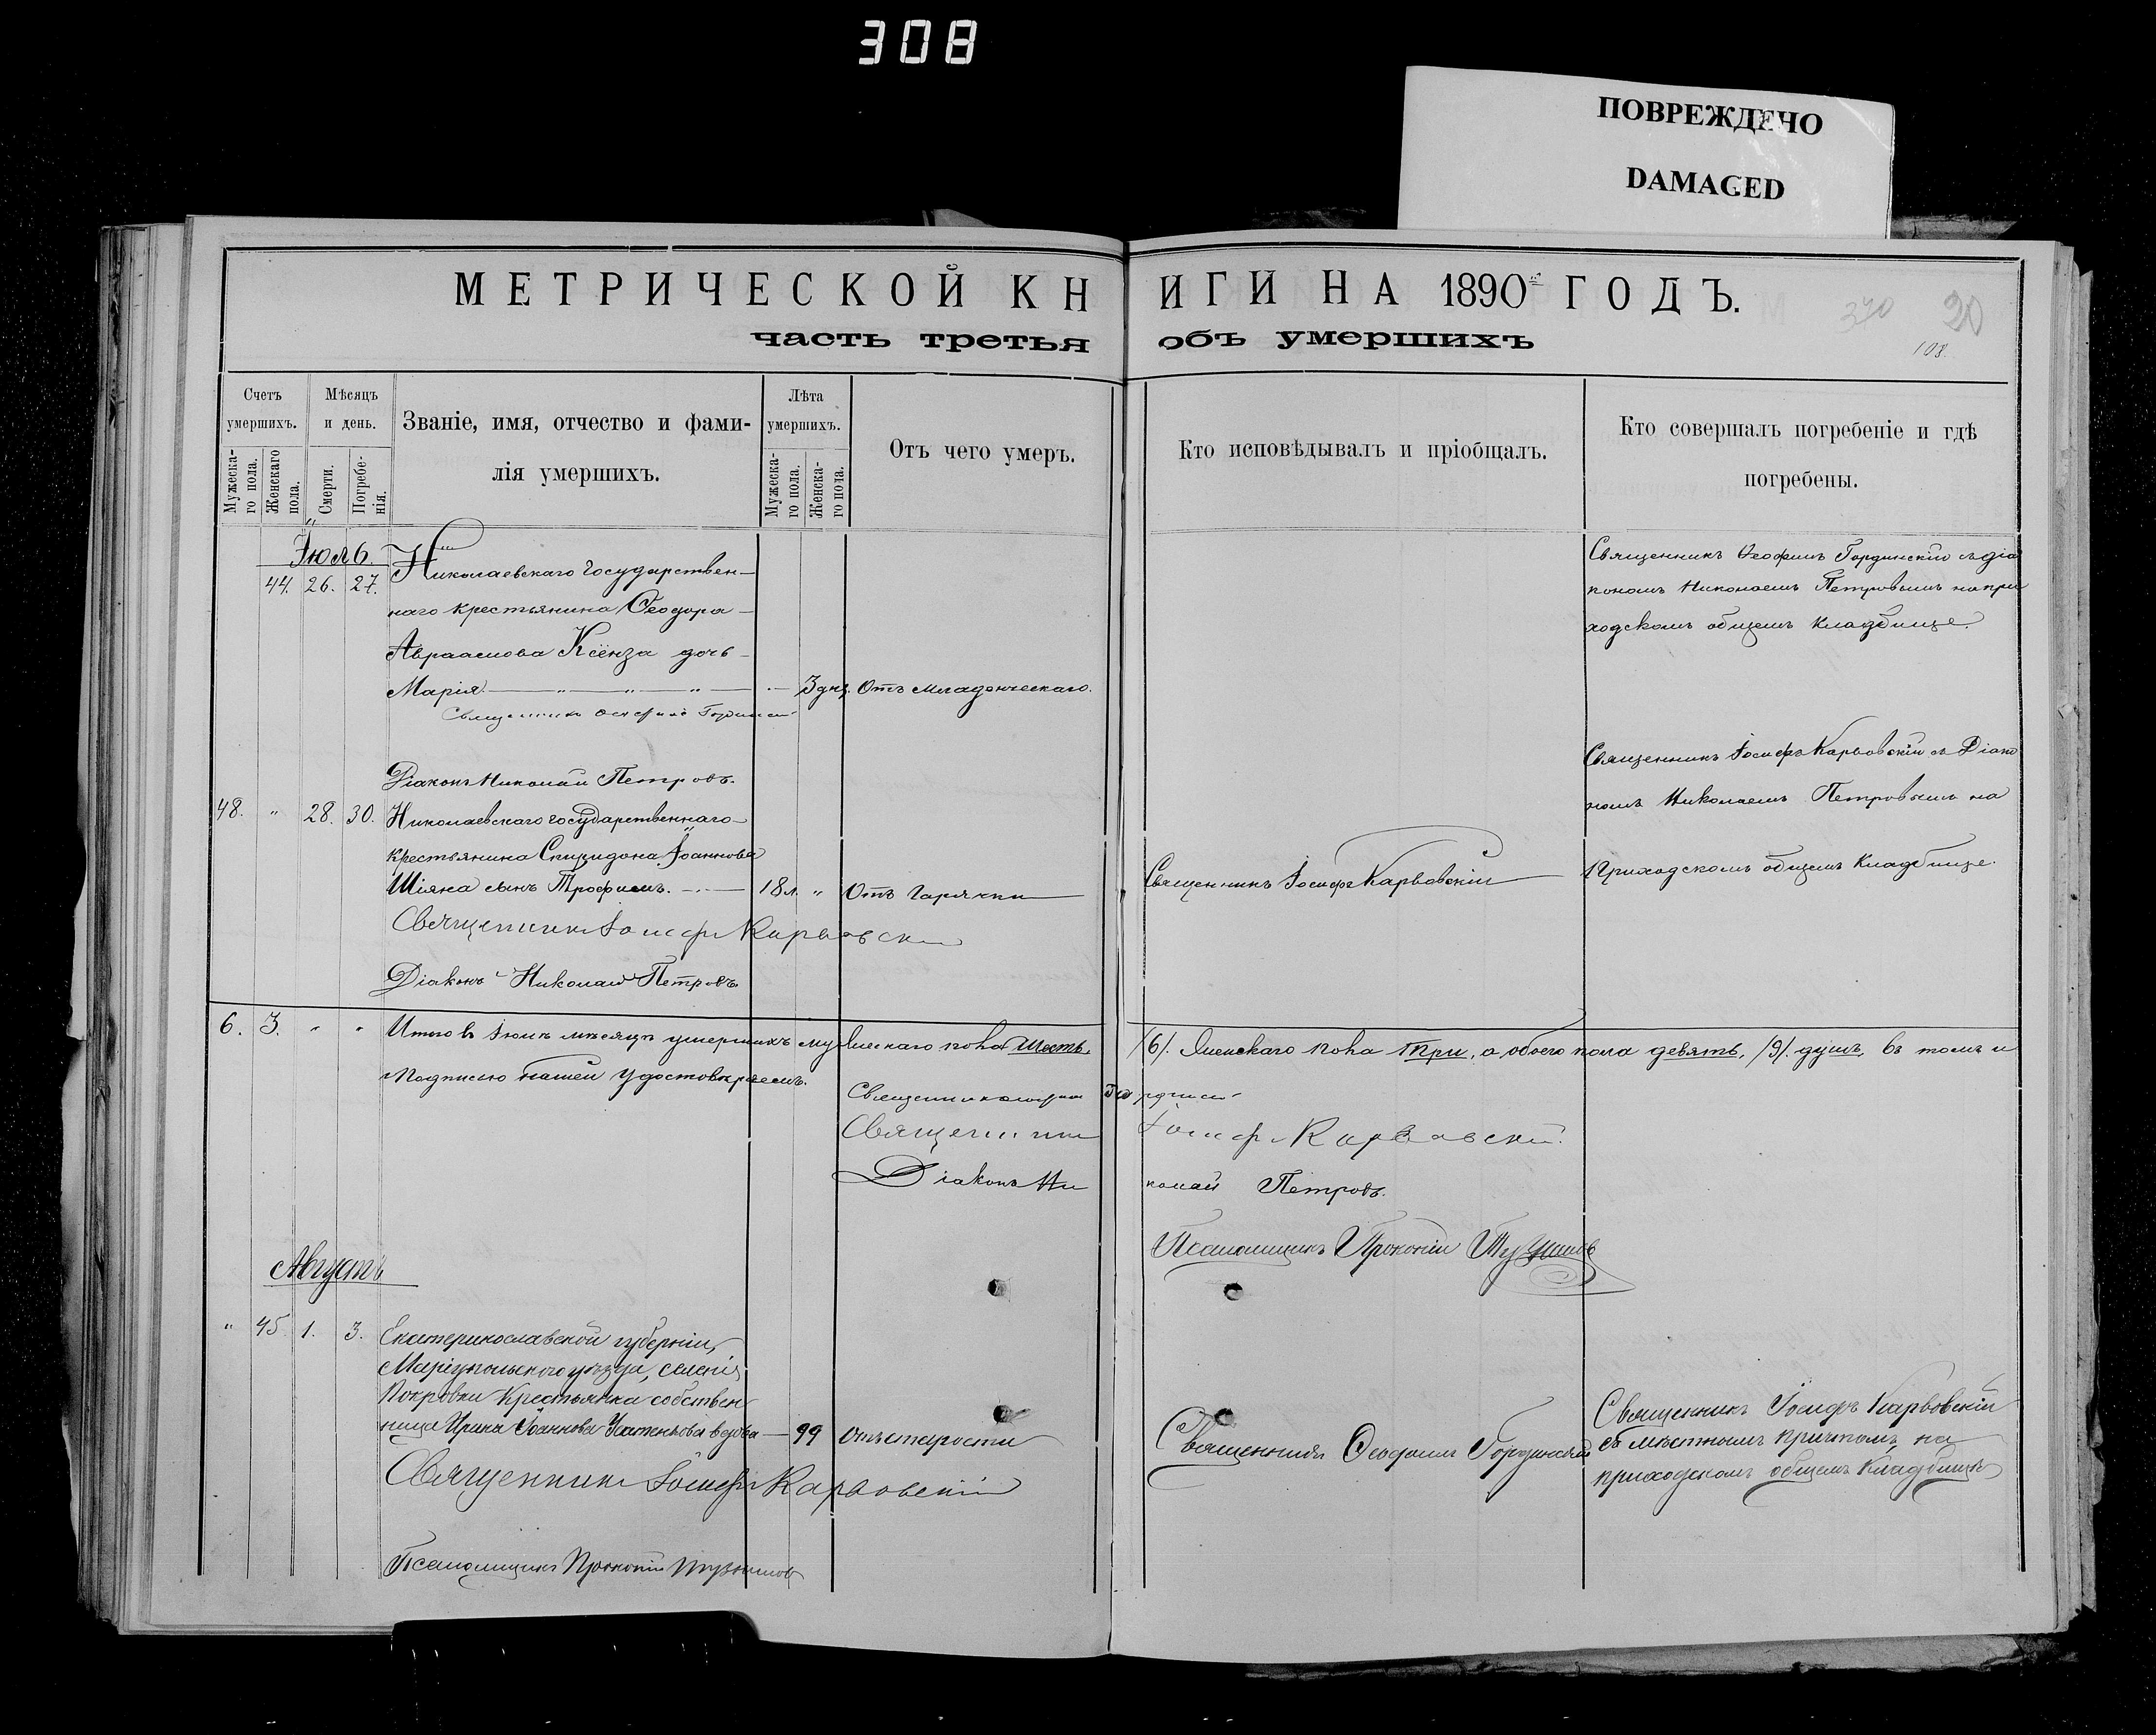 308
ПОВРЕЖДЕНО
DAMAGED
МЕТРИЧЕСКОЙ КНИГИ НА 1890 ГОДЪ.
часть третья объ умершихъ
370 20
108.
Счетъ умершихъ.
Мужеска-го пола.
Женскаго пола.
Мѣсяцъ и день.
Смерти.
Погребе-нія.
Званіе, имя, отчество и фами-
лія умершихъ.
Лѣта умершихъ.
Мужеска-го пола.
Женска-го пола.
Отъ чего умеръ.
Кто исповѣдывалъ и пріобщалъ.
Кто совершалъ погребеніе и гдѣ
погребены.
Іюль.
44. 26. 27. Николаевскаго государствен-
наго крестьянина Ѳеодора
Авраамова Ксёнза дочь
Марія 3 дн. Отъ младенческаго.
Священникъ Ѳеофилъ
Діаконъ Николай Петровъ.
Священникъ Ѳеофилъ Гординскій съ діа
кономъ Николаемъ Петровымъ на при
ходскомъ общемъ кладбище.
48. " 28. 30. Николаевскаго государственнаго
крестьянина Спиридона Іоаннова
Шіяна сынъ Трофимъ. 18 л. " Отъ горячки
Священникъ Іосифъ Карвовскій
Діаконъ Николай Петровъ
Священникъ Іосифъ Карвовскій
Священникъ Іосифъ Карвовскій съ Діако
номъ Николаемъ Петровымъ на
приходскомъ общемъ кладбище.
6. 3. " " Итого въ Іюлѣ мѣсяцѣ умершихъ мужескаго пола шесть, /6/. Женскаго пола три, а обоего пола девять, /9/. душъ, въ томъ и
подписью нашей удостовѣряемъ.
Священникъ
Священникъ Іосифъ Карвовскій.
Діаконъ Николай Петровъ.
Псаломщикъ Прокопій
Августъ
" 45. 1. 3. Екатеринославской губерніи,
Маріупольскаго уѣзда, селенія
Покровки крестьянка собствен
ница Ирина Іоаннова вдова 99 Отъ старости
Священникъ Іосифъ Карвовскій
Псаломщикъ Прокопій
Священникъ Ѳеофилъ Гординскій
Священникъ Іосифъ Карвовскій
съ мѣстнымъ причтомъ, на
приходскомъ общемъ кладбищѣ